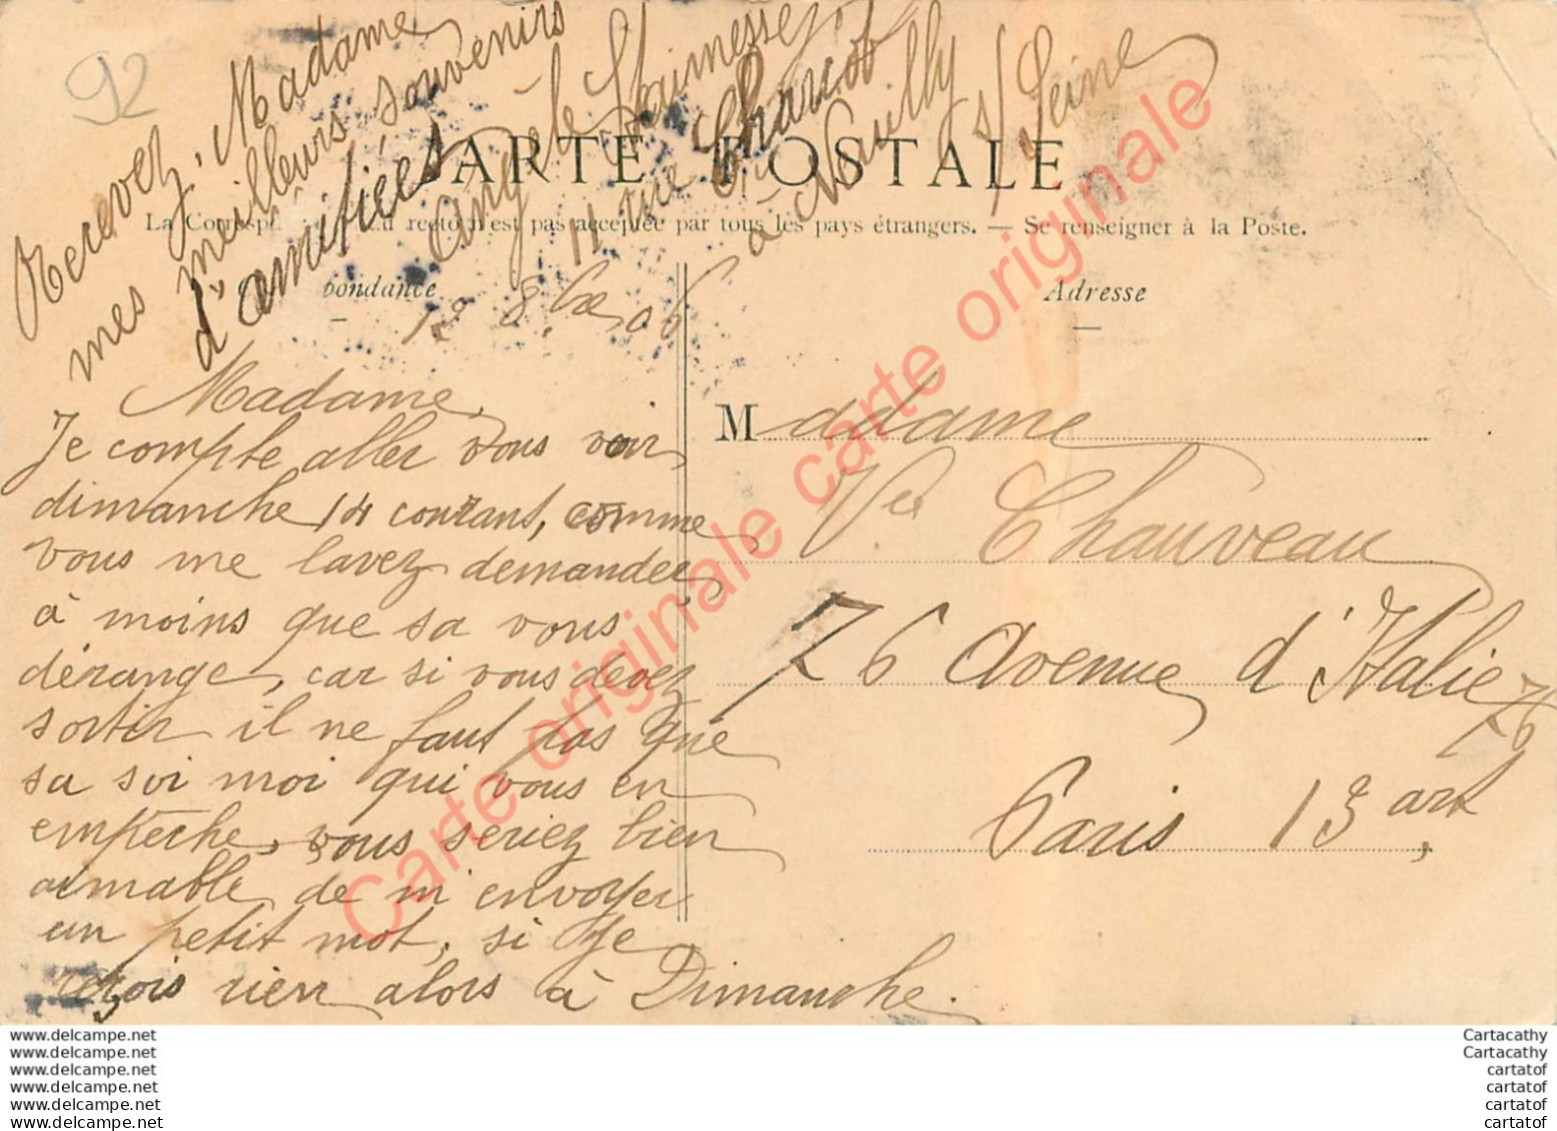 92
Recevez, Madame
mes meilleurs souvenirs
d'amitiées
Angèle
11 rue Chauveau
à Neuilly s/ Seine
CARTE POSTALE
La Corresp recto n'est pas acceptée par tous les pays étrangers. — Se renseigner à la Poste.
pondance
Adresse
8bre 06
Madame,
Je compte aller vous voir,
dimanche 14 courant, comme
vous me lavez demander,
à moins que sa vous
dérange, car si vous devez
sortir il ne faut pas que
sa soi moi qui vous en
empèche, vous seriez bien
aimable de m'envoyer
un petit mot, si je
reçois rien alors à Dimanche.
Madame
Vve Chauveau
76 Avenue d'Italie 76
Paris 13 art,
Carte originale carte originale carte originale
www.delcampe.net
www.delcampe.net
www.delcampe.net
www.delcampe.net
www.delcampe.net
www.delcampe.net
Cartacathy
Cartacathy
cartatof
cartatof
cartatof
cartatof